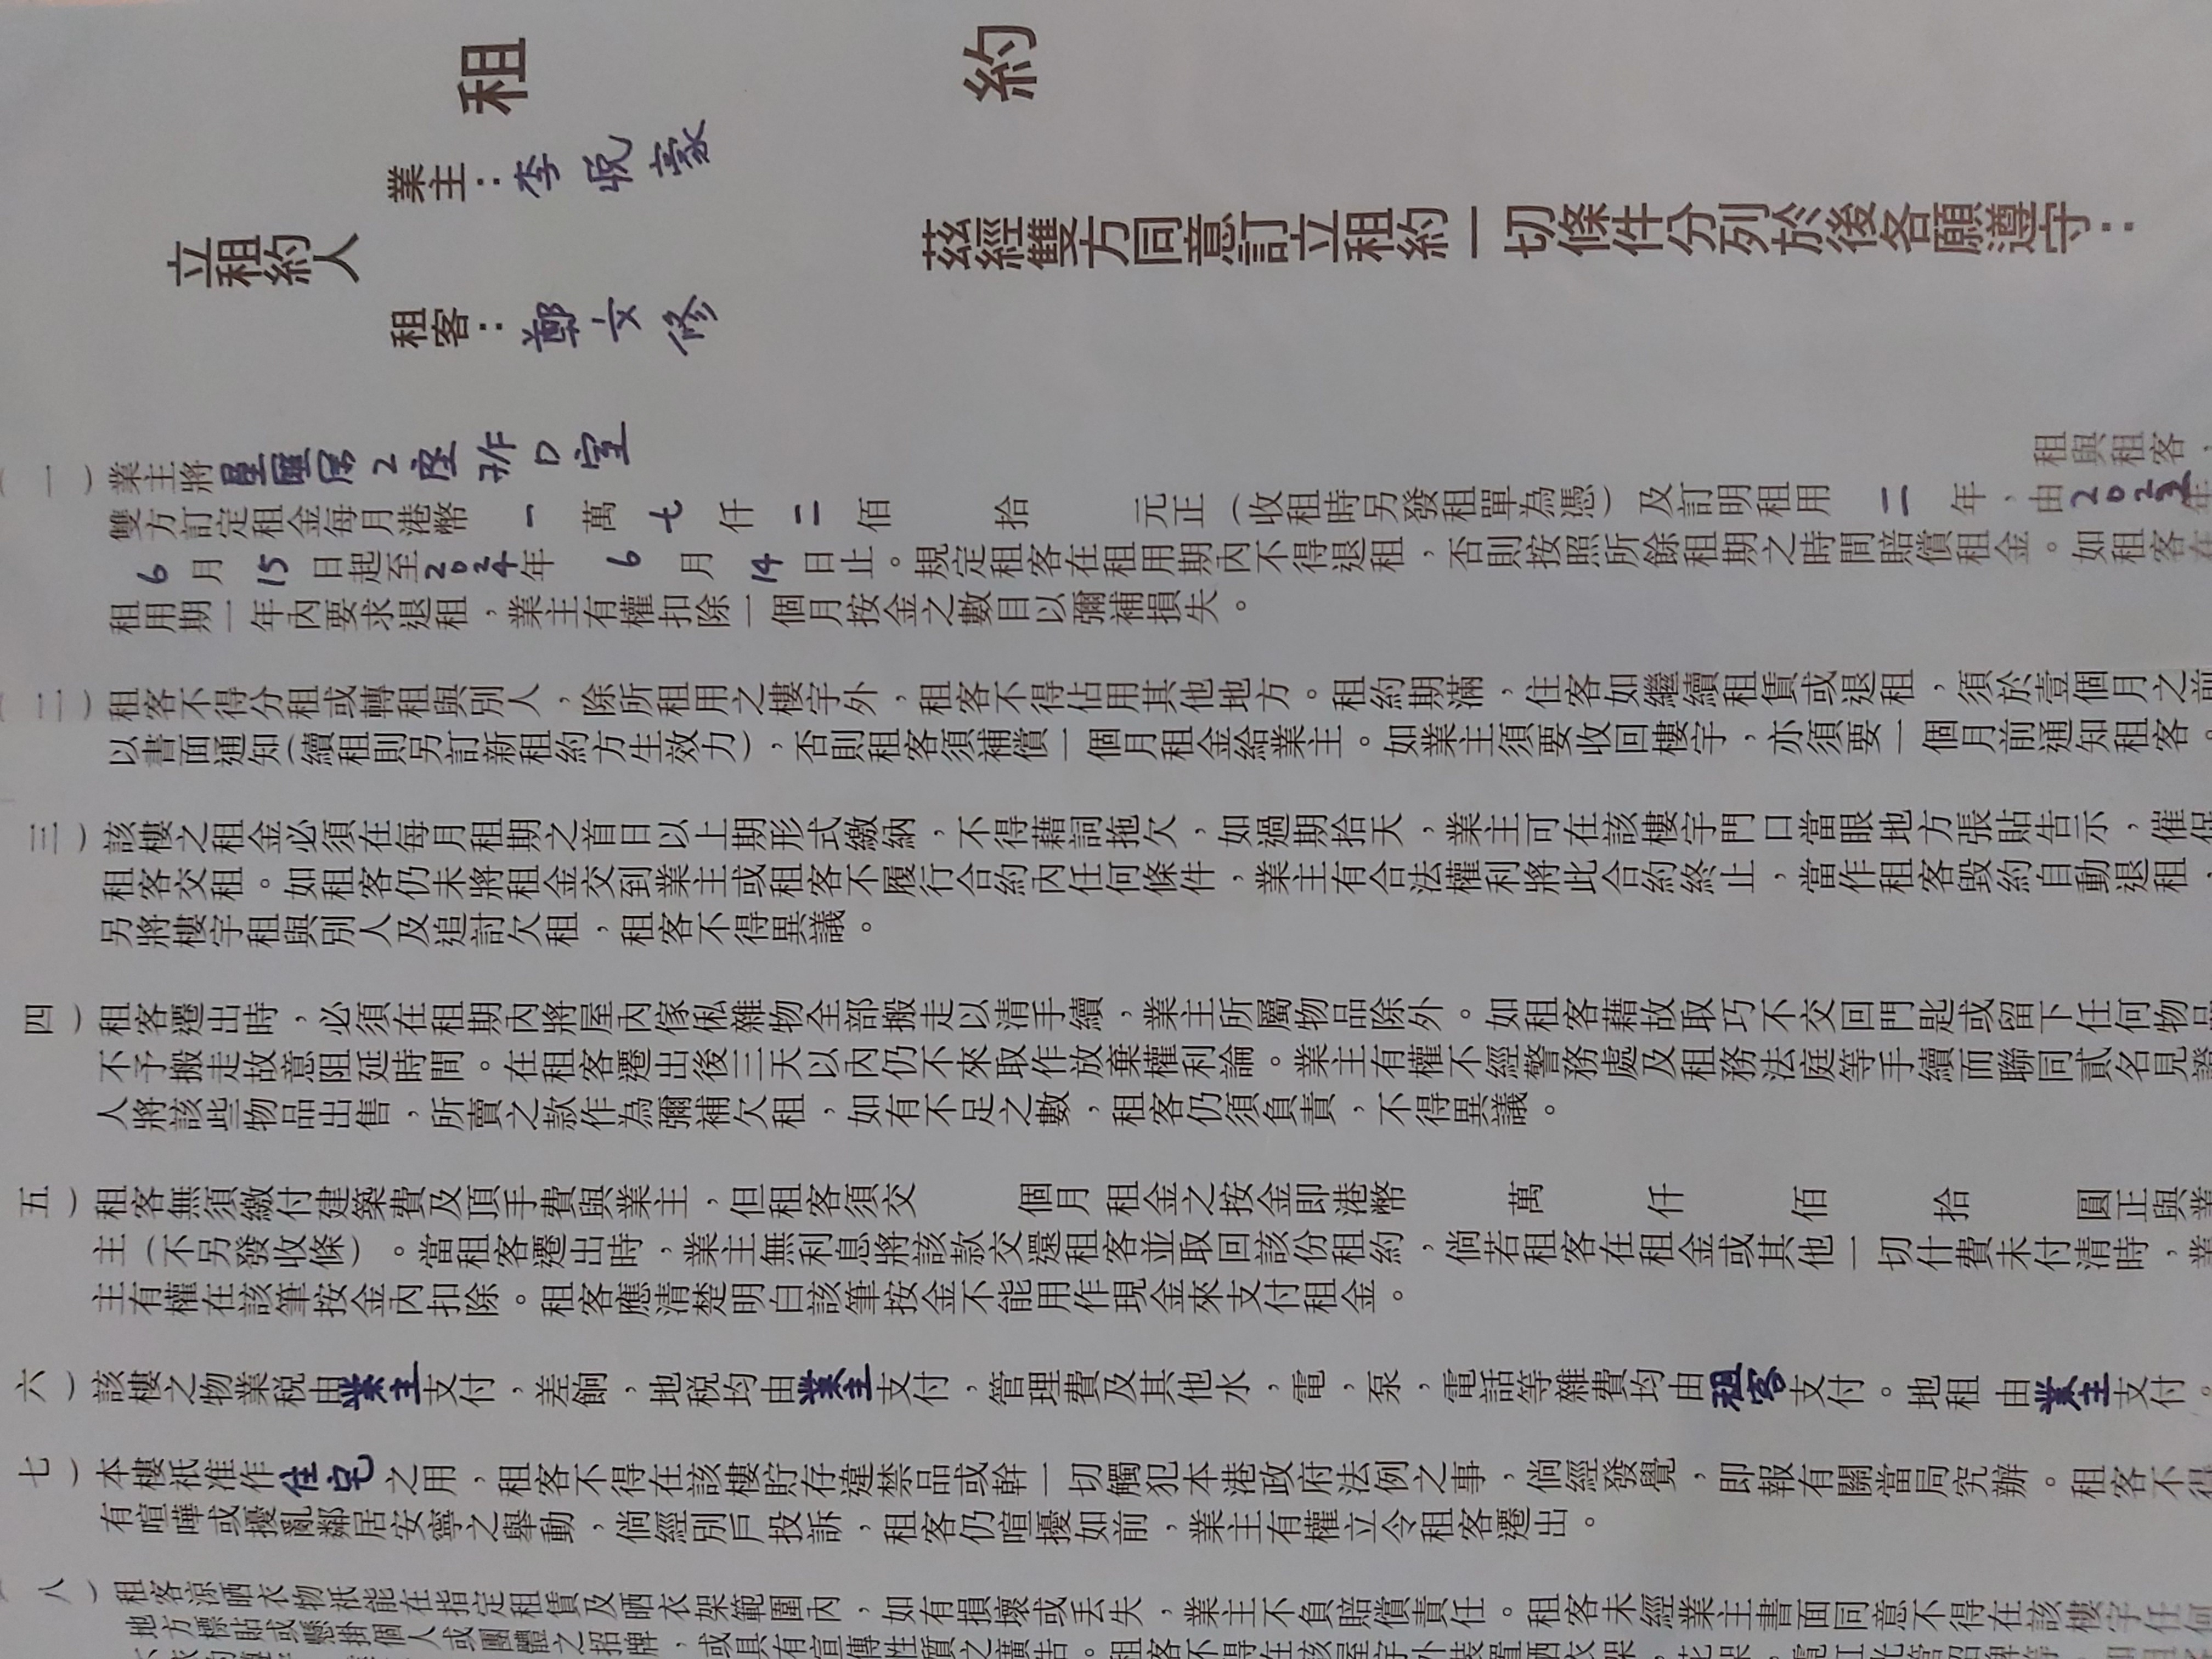 租約
立租約人
業主：李 豪
租客：鄭文修
茲經雙方同意訂立租約一切條件分列於後各願遵守：
(一)業主將星匯居2座 室 租與租客，
雙方訂定租金每月港幣 一 萬 七 仟 二 佰 拾 元正(收租時另發租單為憑)及訂明租用 二 年，由 年
6 月 15 日起至2024年 6 月 14 日止。規定租客在租用期內不得退租，否則按照所餘租期之時間賠償租金。如租客在
租用期一年內要求退租，業主有權扣除一個月按金之數目以彌補損失。
(二)租客不得分租或轉租與別人，除所租用之樓宇外，租客不得佔用其他地方。租約期滿，住客如繼續租賃或退租，須於壹個月之前
以書面通知(續租則另訂新租約方生效力)，否則租客須補償一個月租金給業主。如業主須要收回樓宇，亦須要一個月前通知租客。
三)該樓之租金必須在每月租期之首日以上期形式繳納，不得藉詞拖欠，如過期拾天，業主可在該樓宇門口當眼地方張貼告示，催促
租客交租。如租客仍未將租金交到業主或租客不履行合約內任何條件，業主有合法權利將此合約終止，當作租客毀約自動退租，
另將樓宇租與別人及追討欠租，租客不得異議。
四)租客遷出時，必須在租期內將屋內傢俬雜物全部搬走以清手續，業主所屬物品除外。如租客藉故取巧不交回門匙或留下任何物品
不予搬走故意阻延時間。在租客遷出後三天以內仍不來取作放棄權利論。業主有權不經警務處及租務法庭等手續而聯同貳名見證
人將該些物品出售，所賣之款作為彌補欠租，如有不足之數，租客仍須負責，不得異議。
五)租客無須繳付建築費及頂手費與業主，但租客須交 個月 租金之按金即港幣 萬 仟 佰 拾 圓正與業
主(不另發收條)。當租客遷出時，業主無利息將該款交還租客並取回該份租約，倘若租客在租金或其他一切什費未付清時，業
主有權在該筆按金內扣除。租客應清楚明白該筆按金不能用作現金來支付租金。
六)該樓之物業稅由業主支付，差餉，地稅均由業主支付，管理費及其他水，電，泵，電話等雜費均由租客支付。地租 由業主支付。
七)本樓祇准作住宅之用，租客不得在該樓貯存違禁品或幹一切觸犯本港政府法例之事，倘經發覺，即報有關當局究辦。租客不得
有喧嘩或擾亂鄰居安寧之舉動，倘經別戶投訴，租客仍喧擾如前，業主有權立令租客遷出。
八)租客涼晒衣物祇能在指定租賃及晒衣架範圍內，如有損壞或丟失，業主不負賠償責任。租客未經業主書面同意不得在該樓宇任何
地方標貼或懸掛個人或團體之招牌，或具有宣傳性質之廣告。租客不得在該屋宇外裝置晒衣架，花架，霓虹光管招牌等